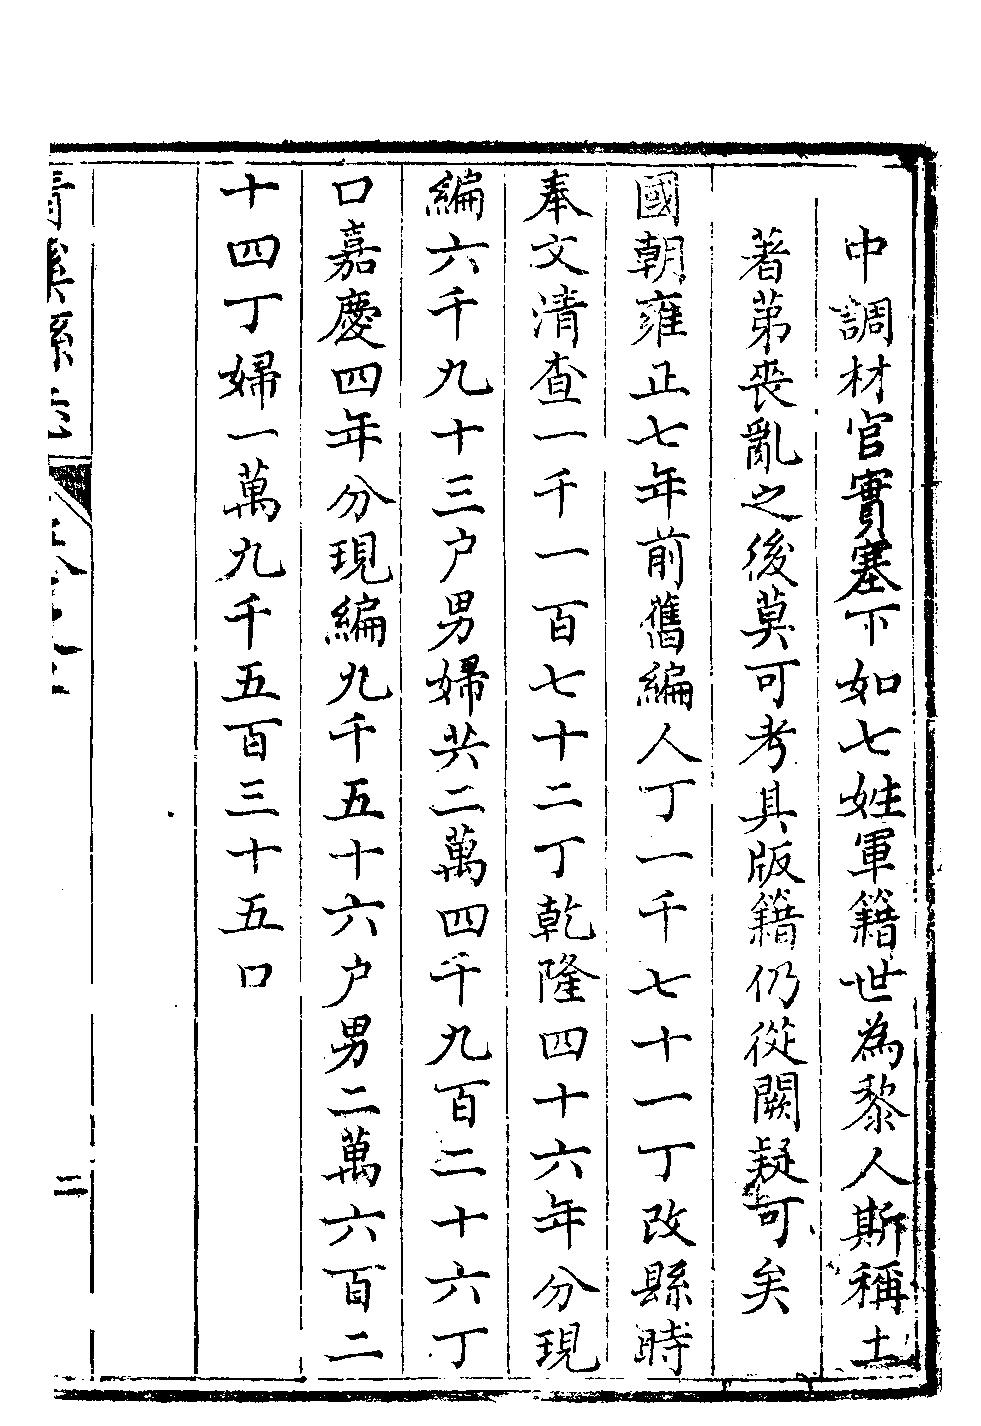 中調材官實塞下如七姓軍籍世為黎人斯稱土
著苐丧亂之後莫可考具版籍仍從闕疑可矣
國朝雍正七年前舊編人丁一千七十一丁改縣時
奉文清查一千一百七十二丁乾隆四十六年分現
編六千九十三户男婦共二萬四千九百二十六丁
口嘉慶四年分現編九千五十六户男二萬六百二
十四丁婦一萬九千五百三十五口
清溪縣志
二